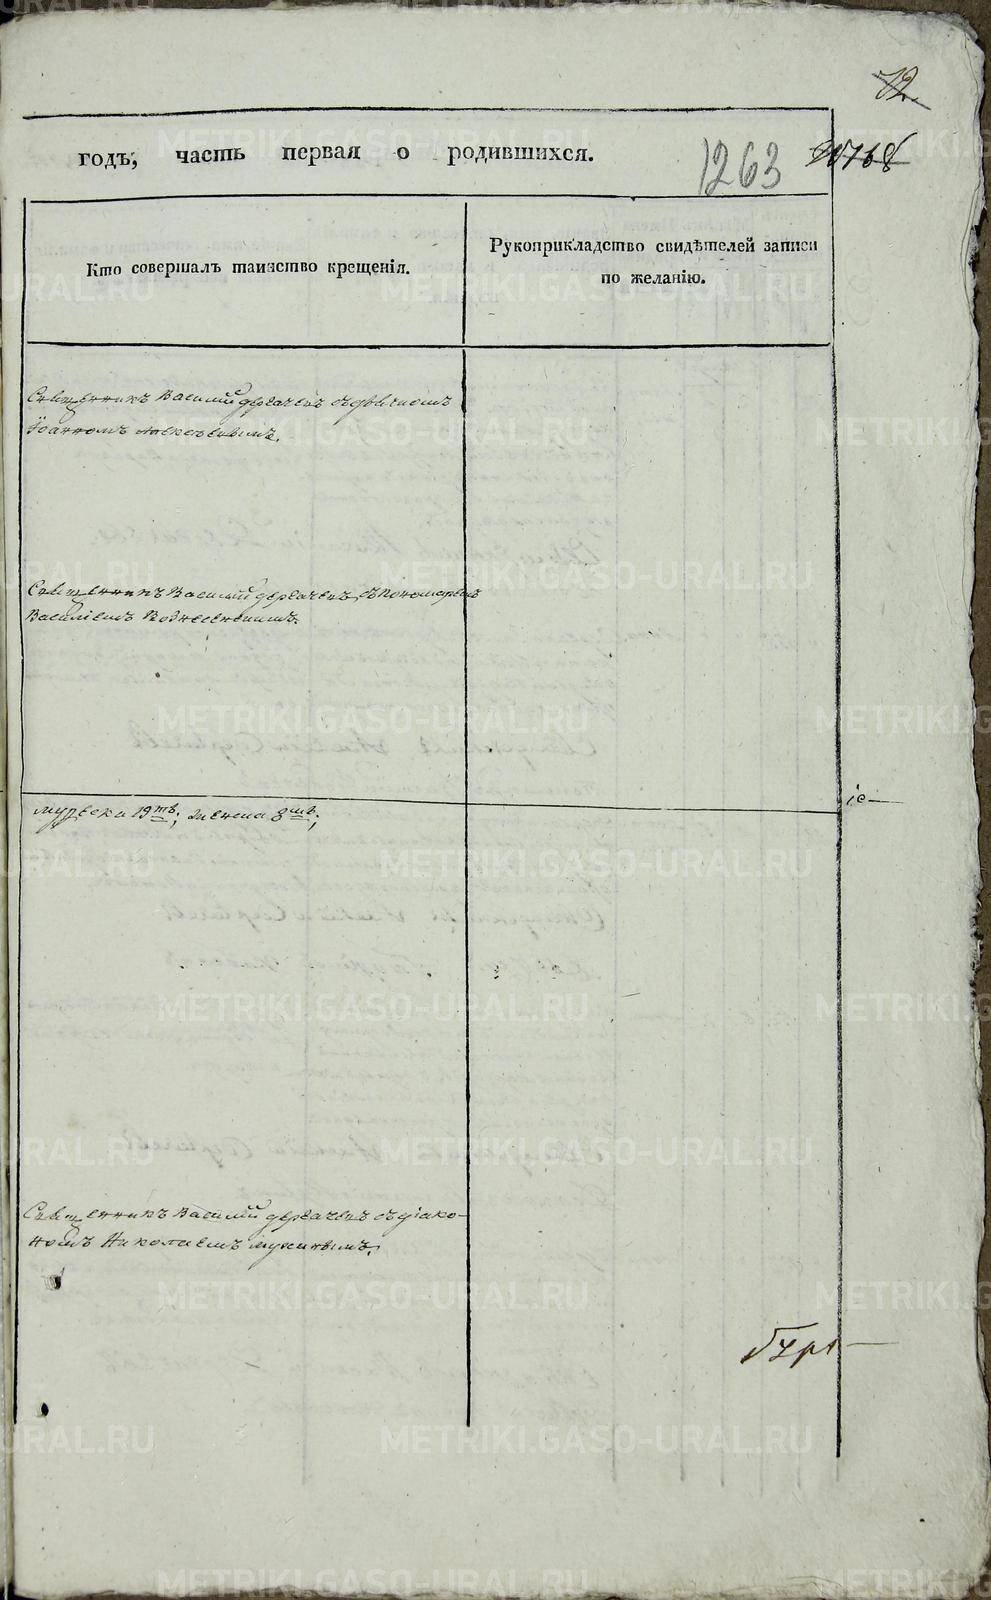 12.
годъ, часть первая о родившихся.
1263
Кто совершалъ таинство крещенія.
Рукоприкладство свидѣтелей записи
по желанію.
Священникъ Василій Дергачевъ съ дьячкомъ
Іоанномъ Алексѣевымъ.
Священникъ Василій Дергачевъ съ пономаремъ
Василіемъ Вознесенскимъ.
мужеска 19ть, женска 8мь,
Священникъ Василій Дергачевъ съ діако-
номъ Николаемъ
METRIKI.GASO-URAL.RU